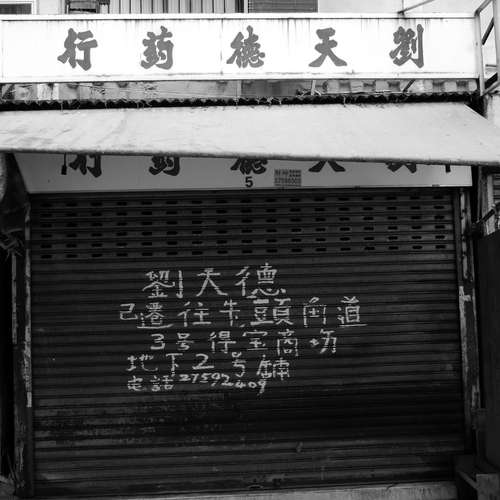 劉天德葯行
劉天德葯行
5
劉天德
已遷往牛頭角道
3号得宝商场
地下2号舖
电話27592409